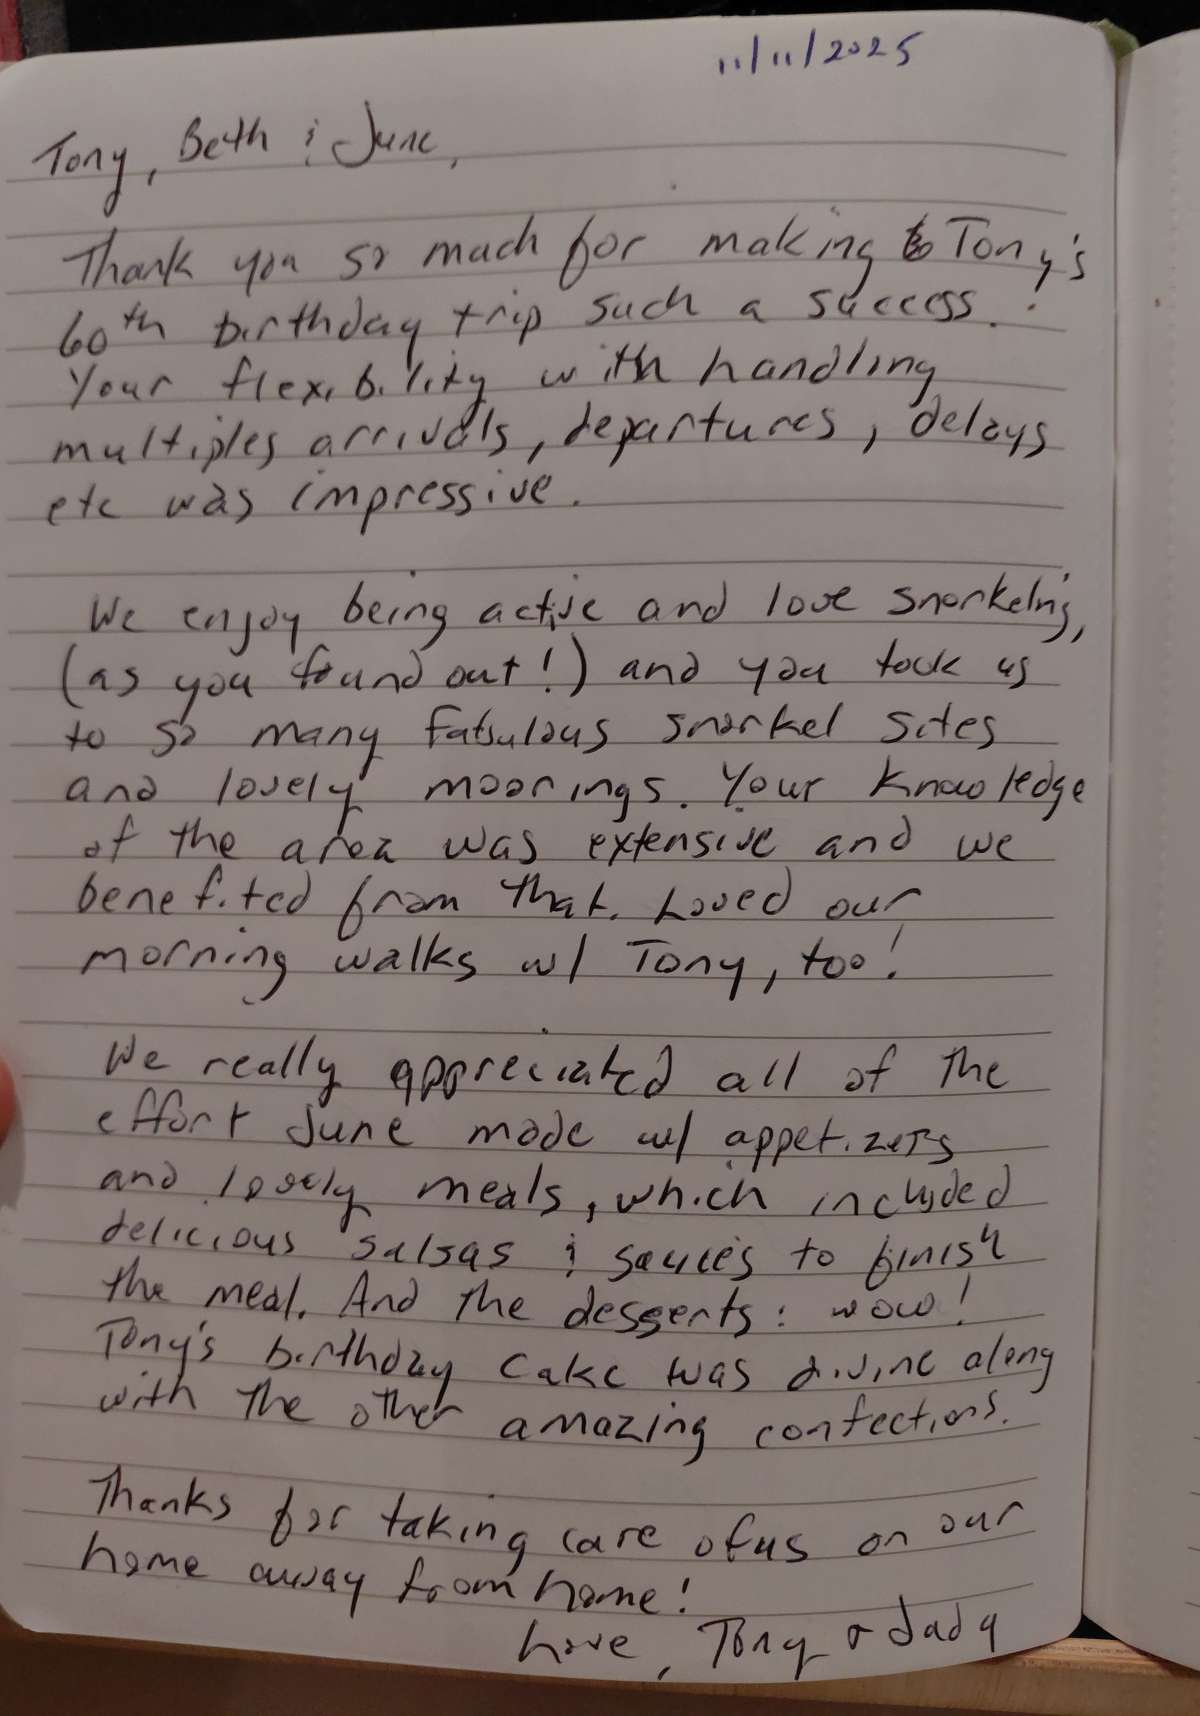 11/11/2025
Tony, Beth & June,
Thank you so much for making Tony's
60th birthday trip such a success.
Your flexibility with handling
multiples arrivals, departures, delays
etc was impressive.
We enjoy being active and love snorkeling,
(as you found out!) and you took us
to so many fabulous snorkel sites
and lovely moorings. Your knowledge
of the area was extensive and we
benefited from that. Loved our
morning walks w/ Tony, too!
We really appreciated all of the
effort June made w/ appetizers
and lovely meals, which included
delicious salsas & sauces to finish
the meal. And the desserts: wow!
Tony's birthday cake was divine along
with the other amazing confections.
Thanks for taking care of us on our
home away from home!
Love, Tony &